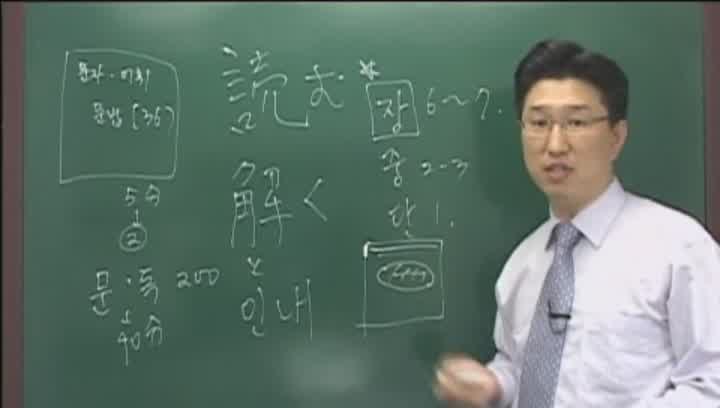 문자·어휘
문법 (36)
5分
②
문·독 200
40分
読む
解く
인내
* 장 6~7.
중 2-3
단 1.